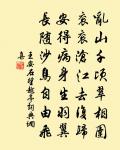 亂山千頃翠相圍
袞袞滄江去復歸
安得病身生羽翼
長隨沙鳥自由飛
王安石望越亭